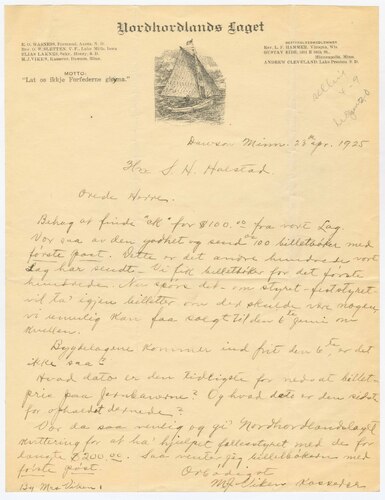 Nordhordlands Laget
E. O. WARNESS, President, Aneta, N. D.
Rev. O. W. SLETTEN, V. P., Lake Mills, Iowa
ELIAS LARNES Sekr., N. D.
M. J. VIKEN, Kasserer, Dawson, Minn.
Rev. L. J. HAMMER, Viroqua, Wis.
GUSTAV EIDE, Minneapolis, Minn.
ANDREW CLEVELAND, Lake Preston S. D.
MOTTO:
"Lat os ikkje Forfederne gløyma."
Dawson Minn. 23 Apr. 1925
Hr. S. H. Holstad.
Ærede Herre.
Behag at finde "ck" for $100.00 fra vort Lag
Vær saa av den godhet og send os 100 billetbøker med
første post. Dette er det andre hundrede vort
Lag har sendt. Vi fik billetbøker for det første
hundrede. Nu spørs det om styret - feststyret
vil ta' igjen billetter om det skulde være nogen
vi umulig kan faa solgt til den 6te juni om
kvelden.
Bygdelagene kommer ind frit den 6te, er det
ikke saa?
Hvad dato er den tidligste for nedsat billet-
pris paa Jernbanerne? Og hvad dato er den sidste
for opholdet dernede?
Vær da saa venlig og gi' Nordhordlandslaget
kvittering for at ha' hjulpet fellesstyret med de for-
langte $200.00. Saa venter jeg billetbøkerne med
første post.
Ærbødigst
M J Viken Kasserer
By Mrs Viken